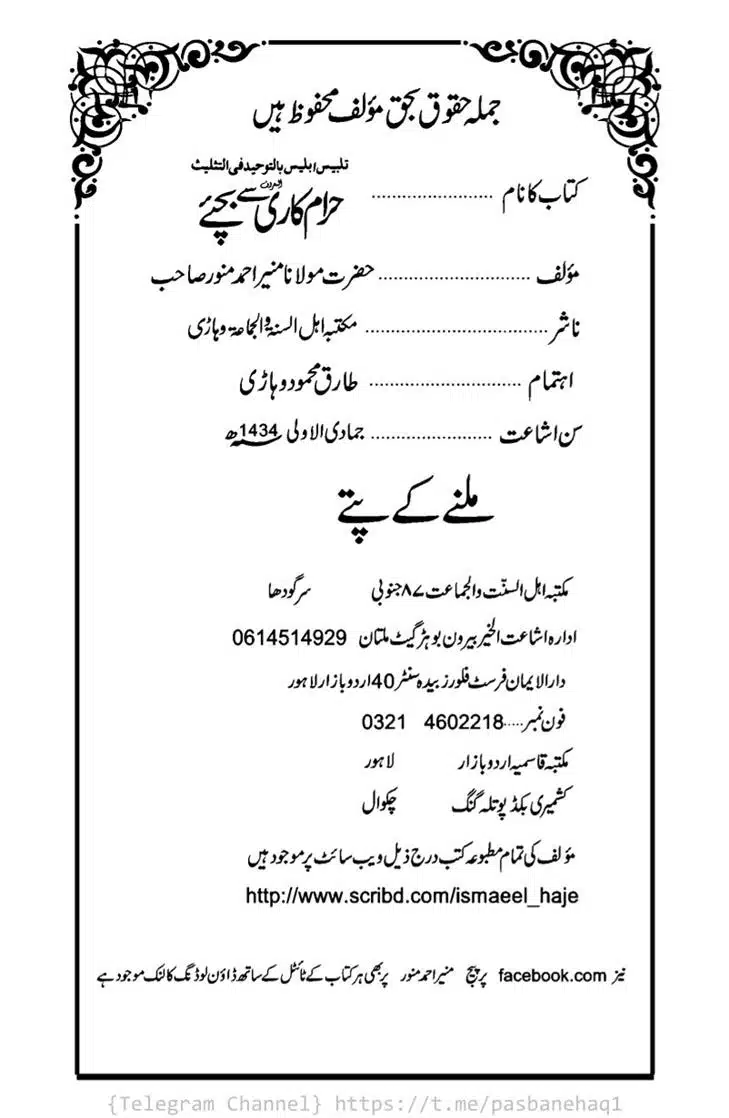 جملہ حقوق بحق مؤلف محفوظ ہیں
تلبیس ابلیس بالتوحید فی التثلیث
کتاب کا نام ...................... حرام کاری سے بچئے
مؤلف ............................ حضرت مولانا منیر احمد منور صاحب
ناشر ................................. مکتبہ اہل السنۃ والجماعۃ وہاڑی
اہتمام ............................ طارق محمود وہاڑی
سن اشاعت ...................... جمادی الاولی 1434ھ
ملنے کے پتے
مکتبہ اہل السنّت والجماعت ۸۷ جنوبی سرگودھا
ادارہ اشاعت الخیر بیرون بوہڑ گیٹ ملتان 0614514929
دارالایمان فرسٹ فلور زبیدہ سنٹر 40 اردو بازار لاہور
فون نمبر..... 4602218 0321
مکتبہ قاسمیہ اردو بازار لاہور
کشمیری بکڈپو تلہ گنگ چکوال
مؤلف کی تمام مطبوعہ کتب درج ذیل ویب سائٹ پر موجود ہیں
http://www.scribd.com/ismaeel_haje
نیز facebook.com پر پیج منیر احمد منور پر بھی ہر کتاب کے ٹائٹل کے ساتھ ڈاؤن لوڈنگ کا لنک موجود ہے
{Telegram Channel} https://t.me/pasbanehaq1